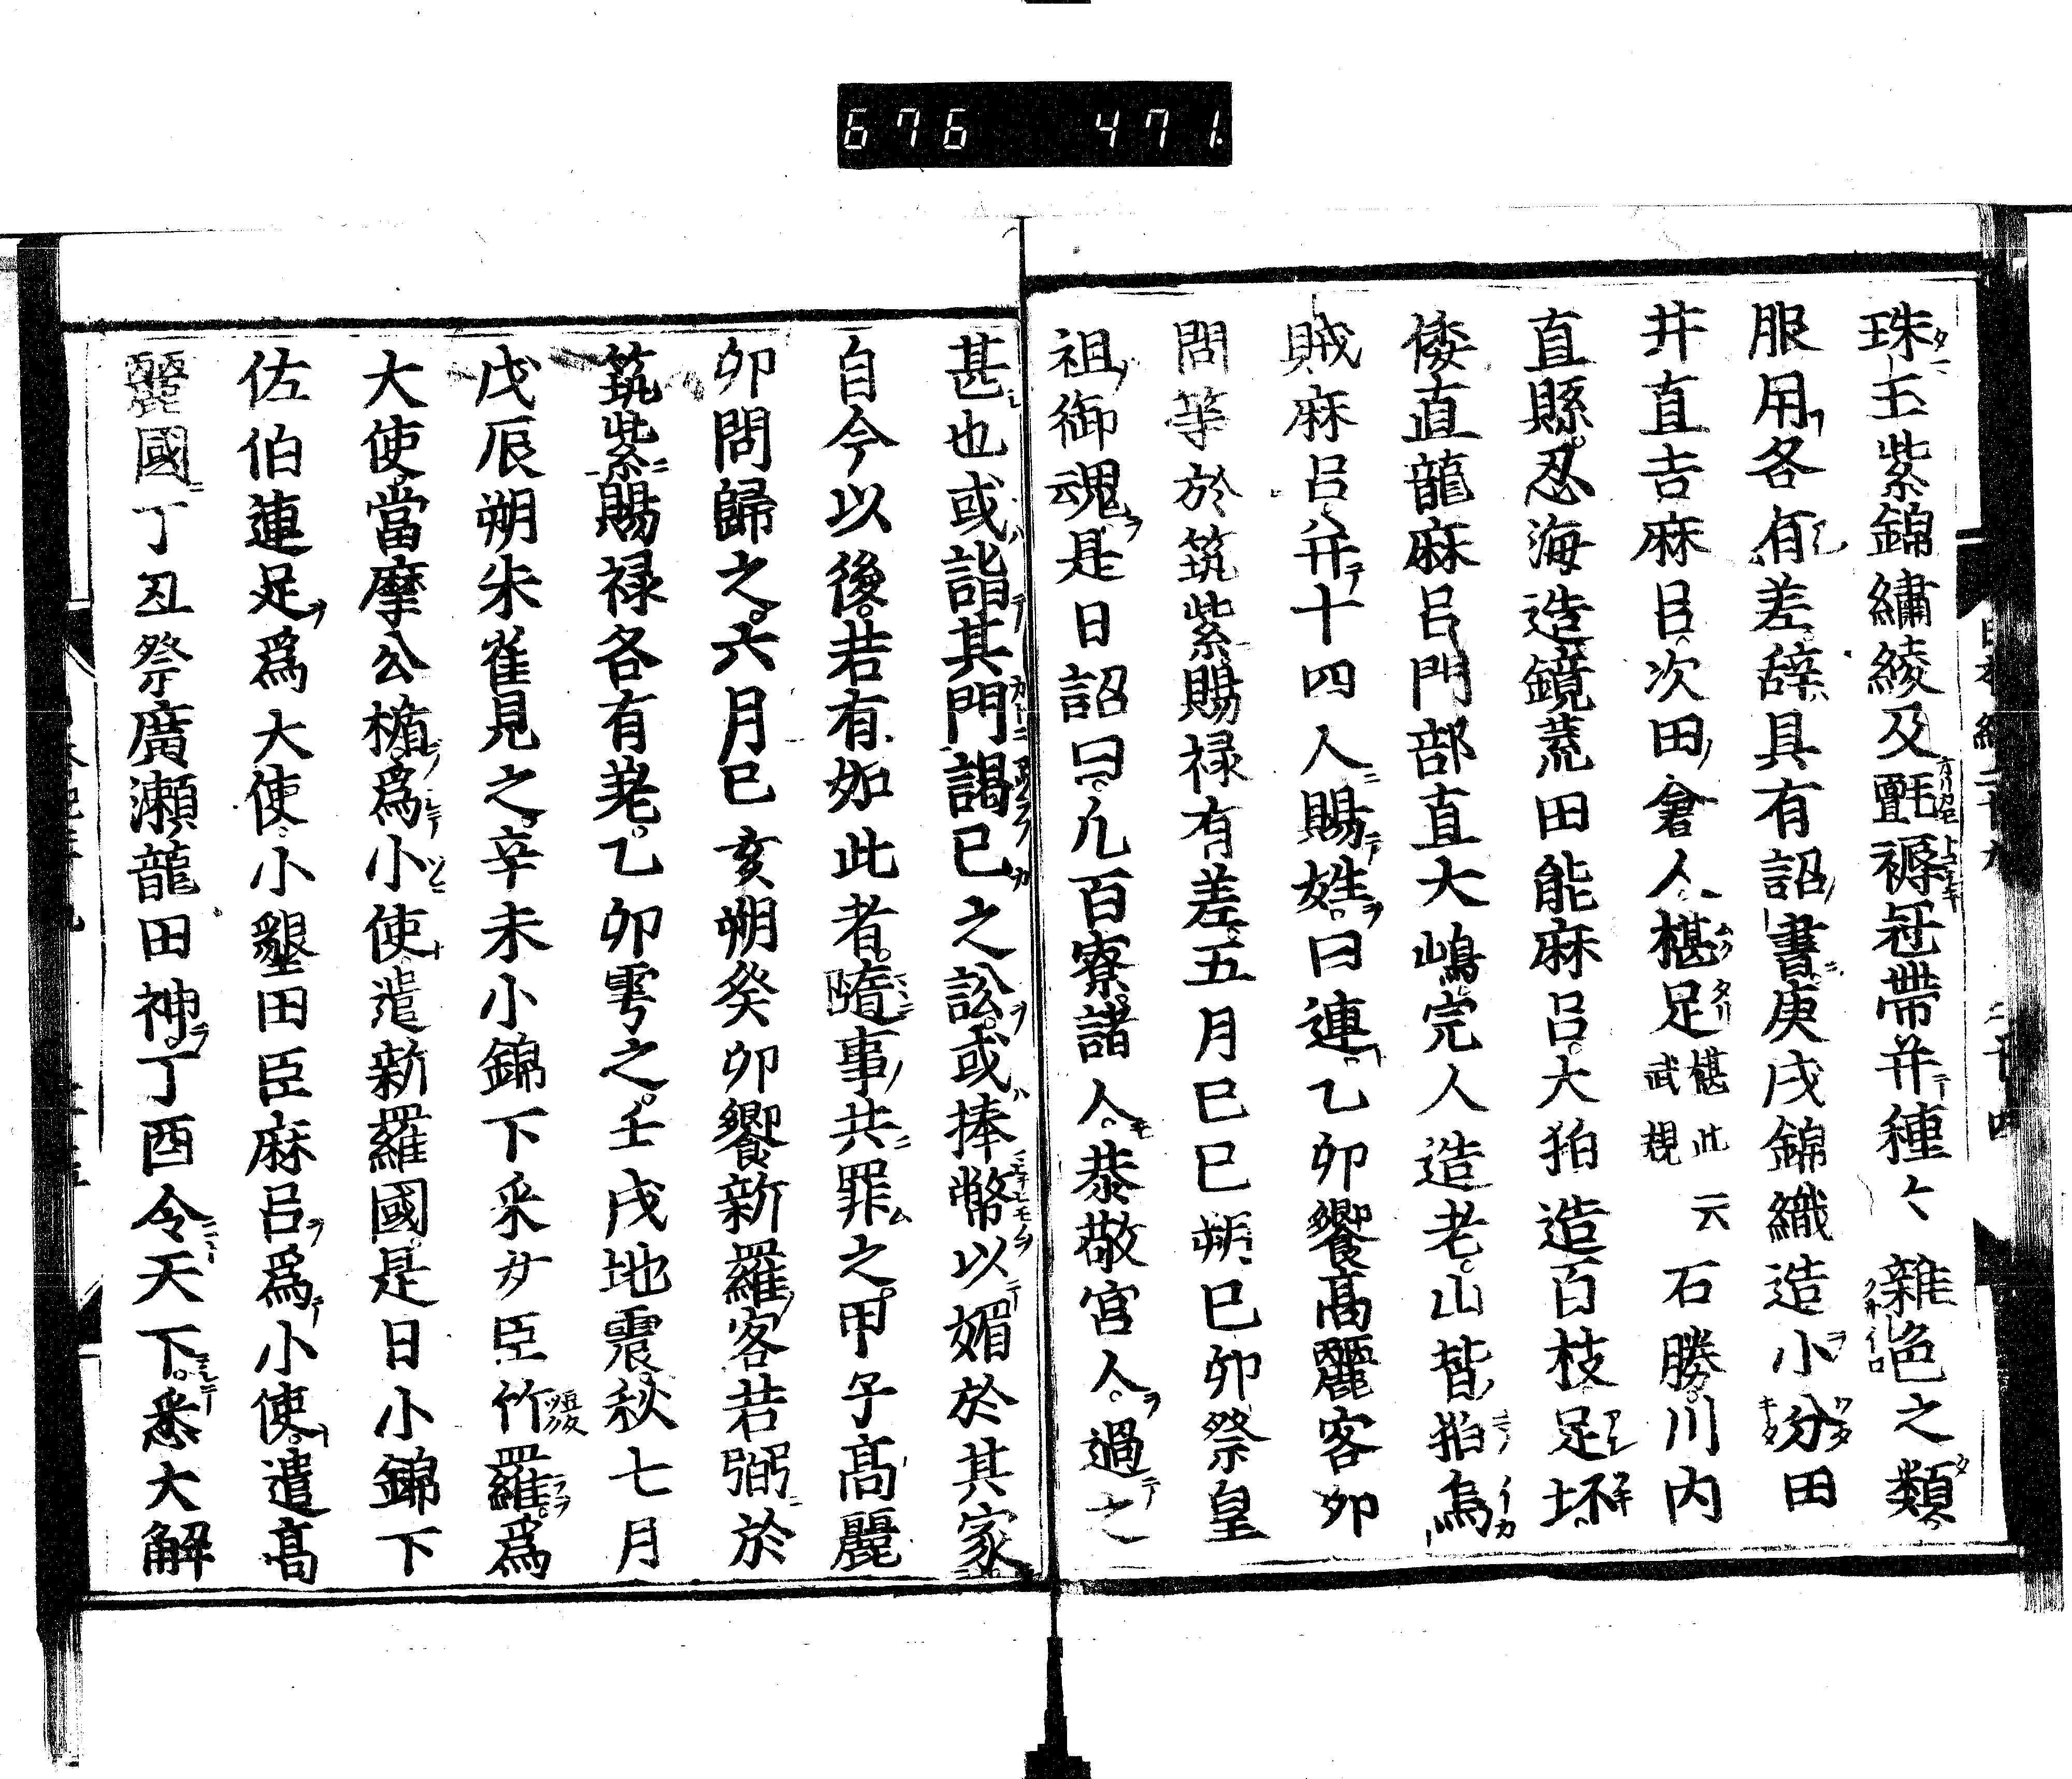 676 471.
珠玉紫錦繡綾及氈褥冠帶并種々雜色之類
服用各有差辭具有詔書庚戌錦織造小分田
井直吉麻呂次田倉人椹足椹此云武規石勝川内
直縣忍海造鏡荒田能麻呂大狛造百枝足坏
倭直龍麻呂門部直大嶋宍人造老山背狛烏
賊麻呂并十四人賜姓曰連乙卯饗髙麗客卯
問等於筑紫賜禄有差五月己巳朔己卯祭皇
祖御魂是日詔曰凢百寮諸人恭敬宮人過之
甚也或詣其門謁己之訟或捧幣以媚於其家
自今以後若有如此者隨事共罪之甲子髙麗
卯問歸之六月己亥朔癸卯饗新羅客若弼於
筑紫賜禄各有差乙卯雩之壬戌地震秋七月
戊辰朔朱雀見之辛未小錦下采女臣竹羅爲
大使當摩公楯爲小使遣新羅國是日小錦下
佐伯連廣足爲大使小墾田臣麻呂爲小使遣髙
麗國丁丑祭廣瀬龍田神丁酉令天下悉大解